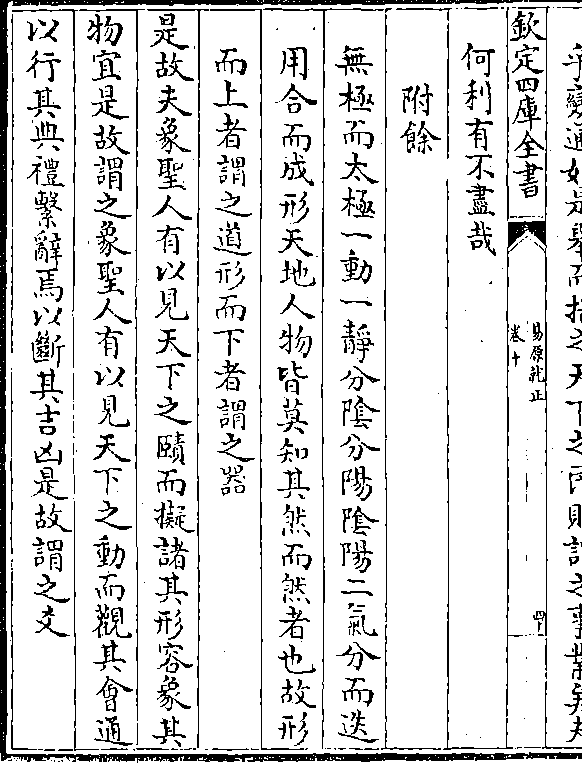 乎變通如是舉而措之天下之民則謂之事業矣夫
欽定四庫全書
易原就正
卷十
四十
何利有不盡哉
附餘
無極而太極一動一靜分陰分陽陰陽二氣分而迭
用合而成形天地人物皆莫知其然而然者也故形
而上者謂之道形而下者謂之器
是故夫象聖人有以見天下之賾而擬諸其形容象其
物宜是故謂之象聖人有以見天下之動而觀其會通
以行其典禮繫辭焉以斷其吉凶是故謂之爻